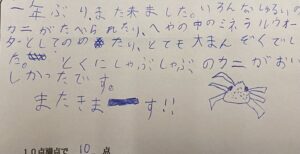 一年ぶり、また来ました。いろんなしゅるいの
カニがたべられたり、へやの中のミネラルウォー
ターとしてのめたり、とても大まんぞくでし
た。とくにしゃぶしゃぶのカニがおい
しかったです。
またきます!!
10点満点で 10 点